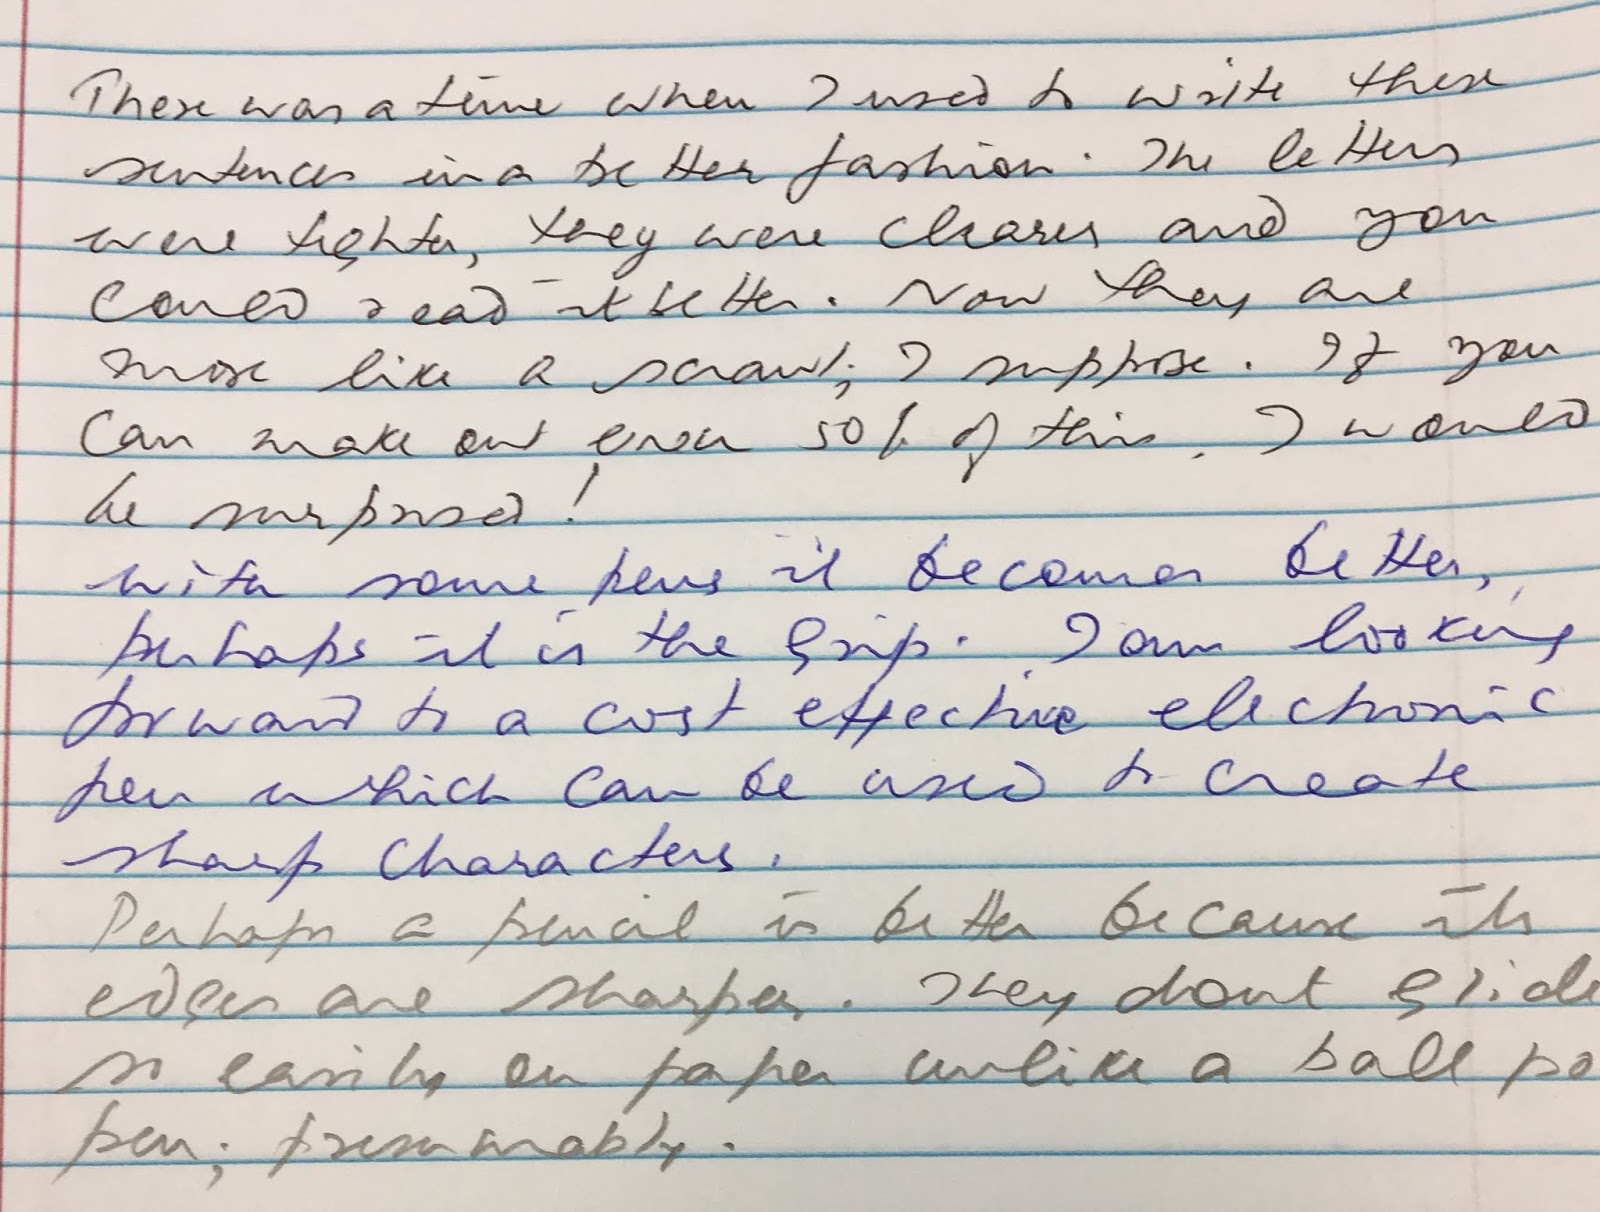 There was a time when I used to write these
sentences in a better fashion. The letters
were tighter, they were clearer and you
could read it better. Now they are
more like a scrawl; I suppose. If you
can make out even 50% of this, I would
be surprised!
with some pens it becomes better,
perhaps it is the grip. I am looking
forward to a cost effective electronic
pen which can be used to create
sharp characters.
Perhaps a pencil is better because its
edges are sharper. They dont glide
so easily on paper unlike a ball po
pen; presumably.